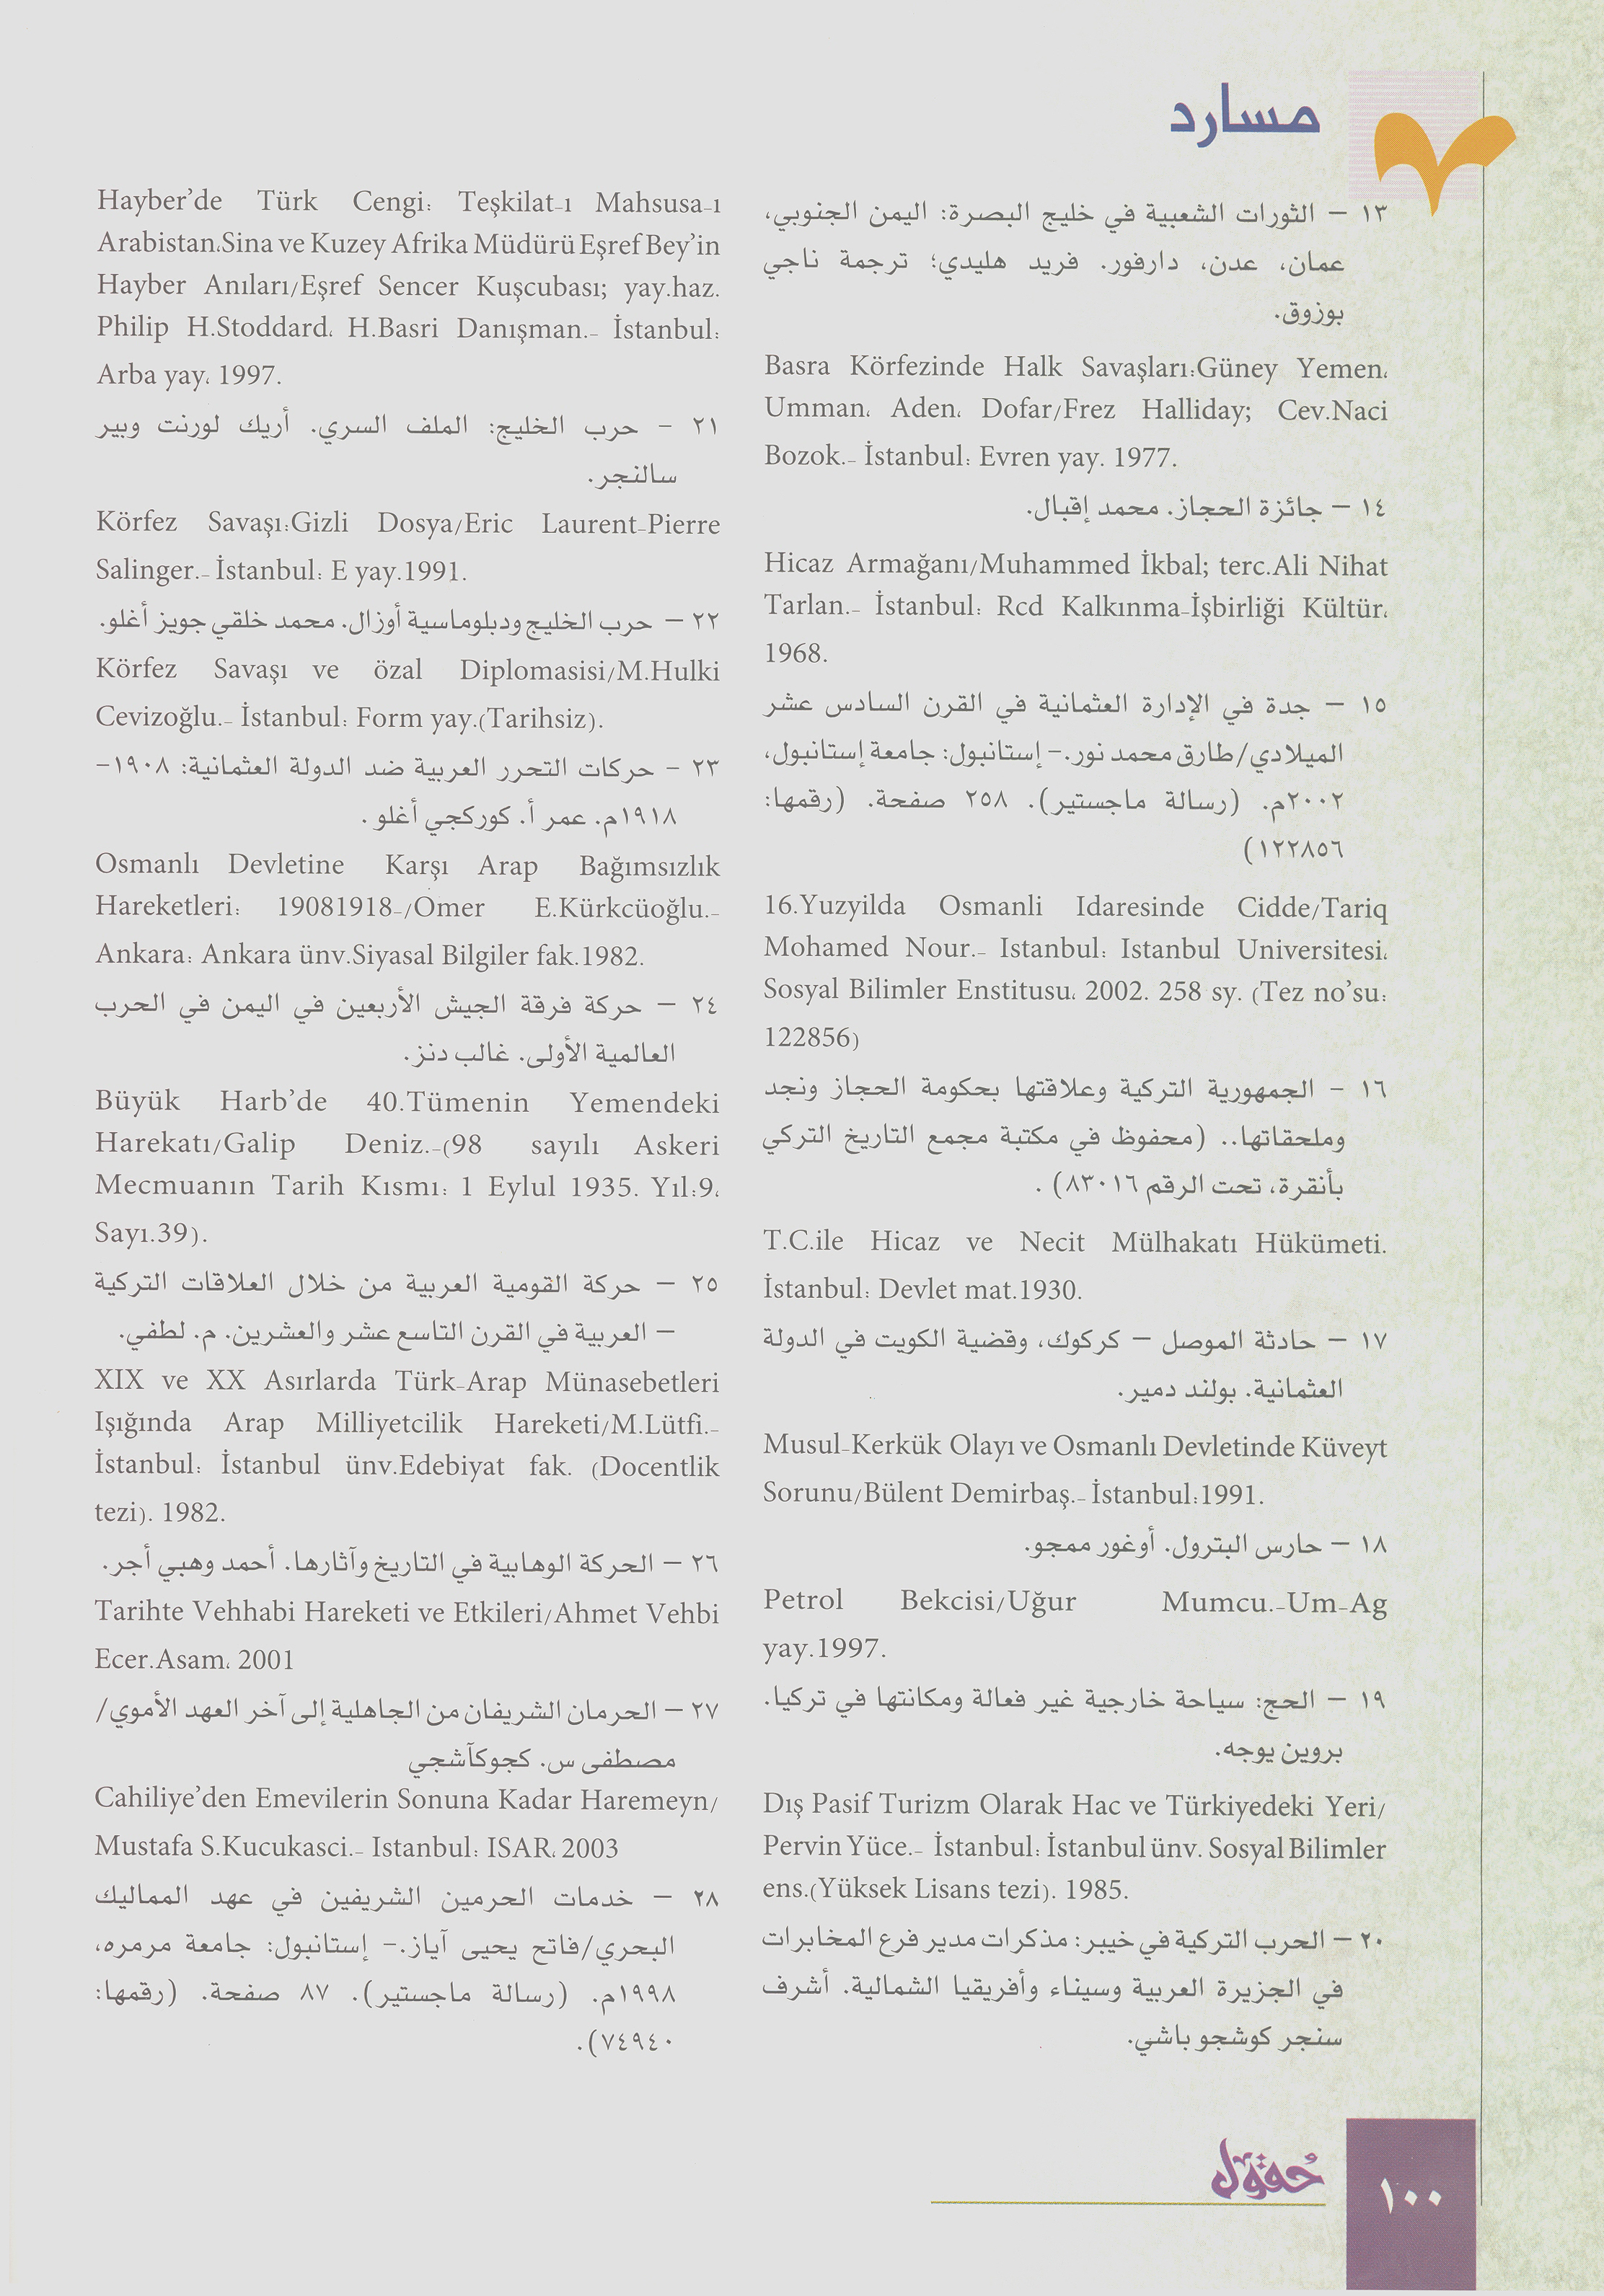 مسارد
١٣ – الثورات الشعبية في خليج البصرة: اليمن الجنوبي،
عمان، عدن، دارفور. فريد هليدي؛ ترجمة ناجي
بوزوق.
Basra Körfezinde Halk Savaşları:Güney Yemen،
Umman، Aden، Dofar/Frez Halliday; Cev.Naci
Bozok.- İstanbul: Evren yay. 1977.
١٤ – جائزة الحجاز. محمد إقبال.
Hicaz Armağanı/Muhammed İkbal; terc.Ali Nihat
Tarlan.- İstanbul: Rcd Kalkınma-İşbirliği Kültür،
1968.
١٥ – جدة في الإدارة العثمانية في القرن السادس عشر
الميلادي/طارق محمد نور.- إستانبول: جامعة إستانبول،
٢٠٠٢م. (رسالة ماجستير). ٢٥٨ صفحة. (رقمها:
١٢٢٨٥٦)
16.Yuzyilda Osmanli Idaresinde Cidde/Tariq
Mohamed Nour.- Istanbul: Istanbul Universitesi،
Sosyal Bilimler Enstitusu، 2002. 258 sy. (Tez no'su:
122856)
١٦ – الجمهورية التركية وعلاقتها بحكومة الحجاز ونجد
وملحقاتها.. (محفوظ في مكتبة مجمع التاريخ التركي
بأنقرة، تحت الرقم ٨٣٠١٦) .
T.C.ile Hicaz ve Necit Mülhakatı Hükümeti.
İstanbul: Devlet mat.1930.
١٧ – حادثة الموصل – كركوك، وقضية الكويت في الدولة
العثمانية. بولند دمير.
Musul-Kerkük Olayı ve Osmanlı Devletinde Küveyt
Sorunu/Bülent Demirbaş.- İstanbul:1991.
١٨ – حارس البترول. أوغور ممجو.
Petrol Bekcisi/Uğur Mumcu.-Um-Ag
yay.1997.
١٩ – الحج: سياحة خارجية غير فعالة ومكانتها في تركيا.
بروين يوجه.
Dış Pasif Turizm Olarak Hac ve Türkiyedeki Yeri/
Pervin Yüce.- İstanbul: İstanbul ünv. Sosyal Bilimler
ens.(Yüksek Lisans tezi). 1985.
٢٠ – الحرب التركية في خيبر: مذكرات مدير فرع المخابرات
في الجزيرة العربية وسيناء وأفريقيا الشمالية. أشرف
سنجر كوشجو باشي.
Hayber'de Türk Cengi: Teşkilat-ı Mahsusa-ı
Arabistan،Sina ve Kuzey Afrika Müdürü Eşref Bey'in
Hayber Anıları/Eşref Sencer Kuşcubası; yay.haz.
Philip H.Stoddard، H.Basri Danışman.- İstanbul:
Arba yay، 1997.
٢١ – حرب الخليج: الملف السري. أريك لورنت وبير
سالنجر.
Körfez Savaşı:Gizli Dosya/Eric Laurent-Pierre
Salinger.- İstanbul: E yay.1991.
٢٢ – حرب الخليج ودبلوماسية أوزال. محمد خلقي جويز أغلو.
Körfez Savaşı ve özal Diplomasisi/M.Hulki
Cevizoğlu.- İstanbul: Form yay.(Tarihsiz).
٢٣ – حركات التحرر العربية ضد الدولة العثمانية: ١٩٠٨-
١٩١٨م. عمر أ. كوركجي أغلو .
Osmanlı Devletine Karşı Arap Bağımsızlık
Hareketleri: 19081918-/Omer E.Kürkcüoğlu.-
Ankara: Ankara ünv.Siyasal Bilgiler fak.1982.
٢٤ – حركة فرقة الجيش الأربعين في اليمن في الحرب
العالمية الأولى. غالب دنز.
Büyük Harb'de 40.Tümenin Yemendeki
Harekatı/Galip Deniz.-(98 sayılı Askeri
Mecmuanın Tarih Kısmı: 1 Eylul 1935. Yıl:9،
Sayı.39).
٢٥ – حركة القومية العربية من خلال العلاقات التركية
– العربية في القرن التاسع عشر والعشرين. م. لطفي.
XIX ve XX Asırlarda Türk-Arap Münasebetleri
Işığında Arap Milliyetcilik Hareketi/M.Lütfi.-
İstanbul: İstanbul ünv.Edebiyat fak. (Docentlik
tezi). 1982.
٢٦ – الحركة الوهابية في التاريخ وآثارها. أحمد وهبي أجر.
Tarihte Vehhabi Hareketi ve Etkileri/Ahmet Vehbi
Ecer.Asam، 2001
٢٧ – الحرمان الشريفان من الجاهلية إلى آخر العهد الأموي/
مصطفى س. كجوكآشجي
Cahiliye'den Emevilerin Sonuna Kadar Haremeyn/
Mustafa S.Kucukasci.- Istanbul: ISAR، 2003
٢٨ – خدمات الحرمين الشريفين في عهد المماليك
البحري/فاتح يحيى آياز.- إستانبول: جامعة مرمره،
١٩٩٨م. (رسالة ماجستير). ٨٧ صفحة. (رقمها:
٧٤٩٤٠).
حُقول
١٠٠